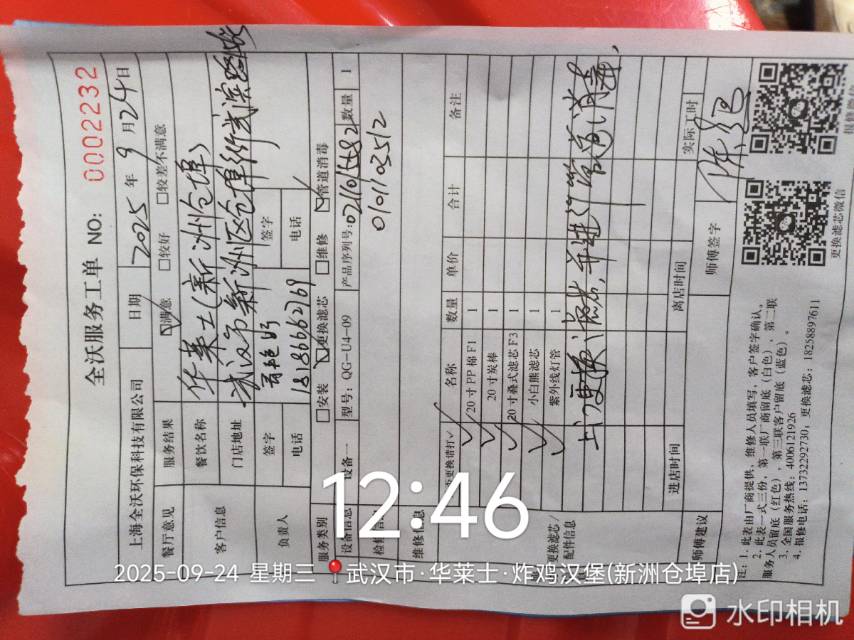 全沃服务工单 NO: 0002232
上海全沃环保科技有限公司 日期 2025 年 9 月 24 日
餐厅意见 服务结果 ☑满意 □较好 □较差不满意
客户信息 餐饮名称 华莱士(新洲仓埠)
门店地址 武汉市新洲区仓埠街
负责人 签字 签字
电话 18186662769 电话
服务类别 □安装 ☑更换滤芯 □维修 ☑管道消毒
设备信息 设备一 型号: QG-U4-09 产品序列号: 数量 1
检修信息 0101103512
维修信息
更换滤芯/配件信息 更换请打✓ 名称 数量 单价 合计 备注
✓ 20 寸 PP 棉 F1 1
✓ 20 寸炭棒 1
✓ 20 寸叠式滤芯 F3 1
✓ 小白熊滤芯 1
✓ 紫外线灯管 1
上门更换滤芯,并进行管道消毒,
进店时间 离店时间 实际工时
师傅建议 师傅签字
注: 1、此表由厂商提供,维修人员填写,客户签字确认,
2、此表一式三份,第一联厂商留底(白色),第二联
服务人员留底(红色),第三联客户留底(蓝色)。
3、全国服务热线: 4006121926
4、报修电话: 13732292730; 更换滤芯: 18258897611
更换滤芯微信
报修微信
12:46
2025-09-24 星期三 武汉市·华莱士·炸鸡汉堡(新洲仓埠店)
水印相机